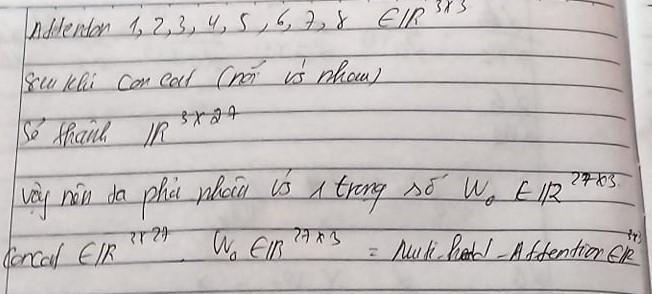 Attention 1, 2, 3, 4, 5, 6, 7, 8 ∈ IR^3x3
sau khi con cat (nối vs nhau)
Sẽ thành IR^3x27
vậy nên ta phải nhân vs 1 trọng số W_o ∈ IR^27x3
Concat ∈ IR^3x27 W_o ∈ IR^27x3 = Multi-head-Attention ∈ IR^3x3